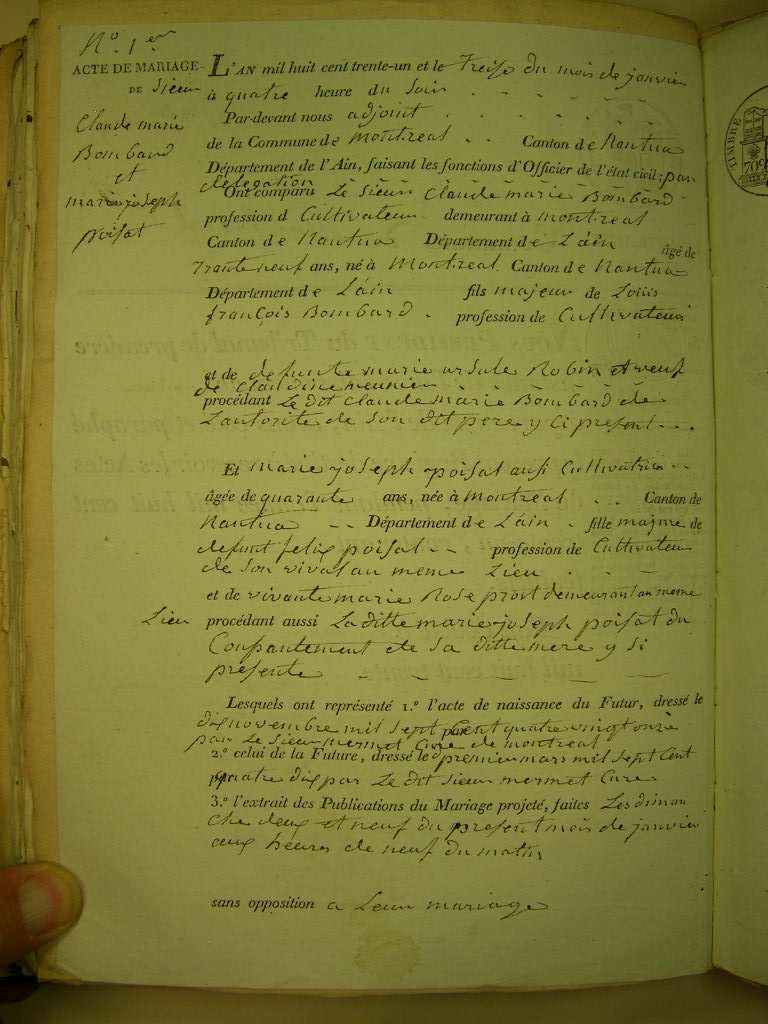 N.º 1er
ACTE DE MARIAGE
DE Sieur
Claude marie
Bombard
et
marie joseph
poisat
L'AN mil huit cent trente-un et le treise du mois de janvier
à quatre heure du soir
Par-devant nous adjoint
de la Commune de Montreal Canton de Nantua
Département de l'Ain, faisant les fonctions d'Officier de l'état civil, par
delegation
Ont comparu Le sieur Claude marie Bombard
profession de Cultivateur demeurant à montreal
Canton de Nantua Département de L'ain âgé de
trante neuf ans, né à Montreal Canton de Nantua
Département de L'ain fils majeur de Louis
françois Bombard profession de Cultivateur
et de defunte marie ursule Robin et veuf
de Claudine meunier
procédant Le dit Claude marie Bombard de
L'autorite de son dit pere y ci present
Et marie joseph poisat aussi Cultivatrice
âgée de quarante ans, née à Montreal Canton de
Nantua Département de L'ain fille majure de
defunt felix poisat profession de Cultivateur
de son vivat au meme Lieu
et de vivante marie Rose prost demeurant au meme
Lieu procédant aussi La ditte marie joseph poisat du
Consantement de sa ditte mere y si
presente
Lesquels ont représenté 1.º l'acte de naissance du Futur, dressé le
dix novembre mil sept cent quatre vingt onze
par Le sieur mermet Cure de montreal
2.º celui de la Future, dressé le premier mars mil sept Cent
quatre dix par Le dit sieur mermet Cure
3.º l'extrait des Publications du Mariage projeté, faites Les diman
che deux et neuf du present mois de janvier
aux heures de neuf du matin
sans opposition a Leur mariage
TIMBRE
709